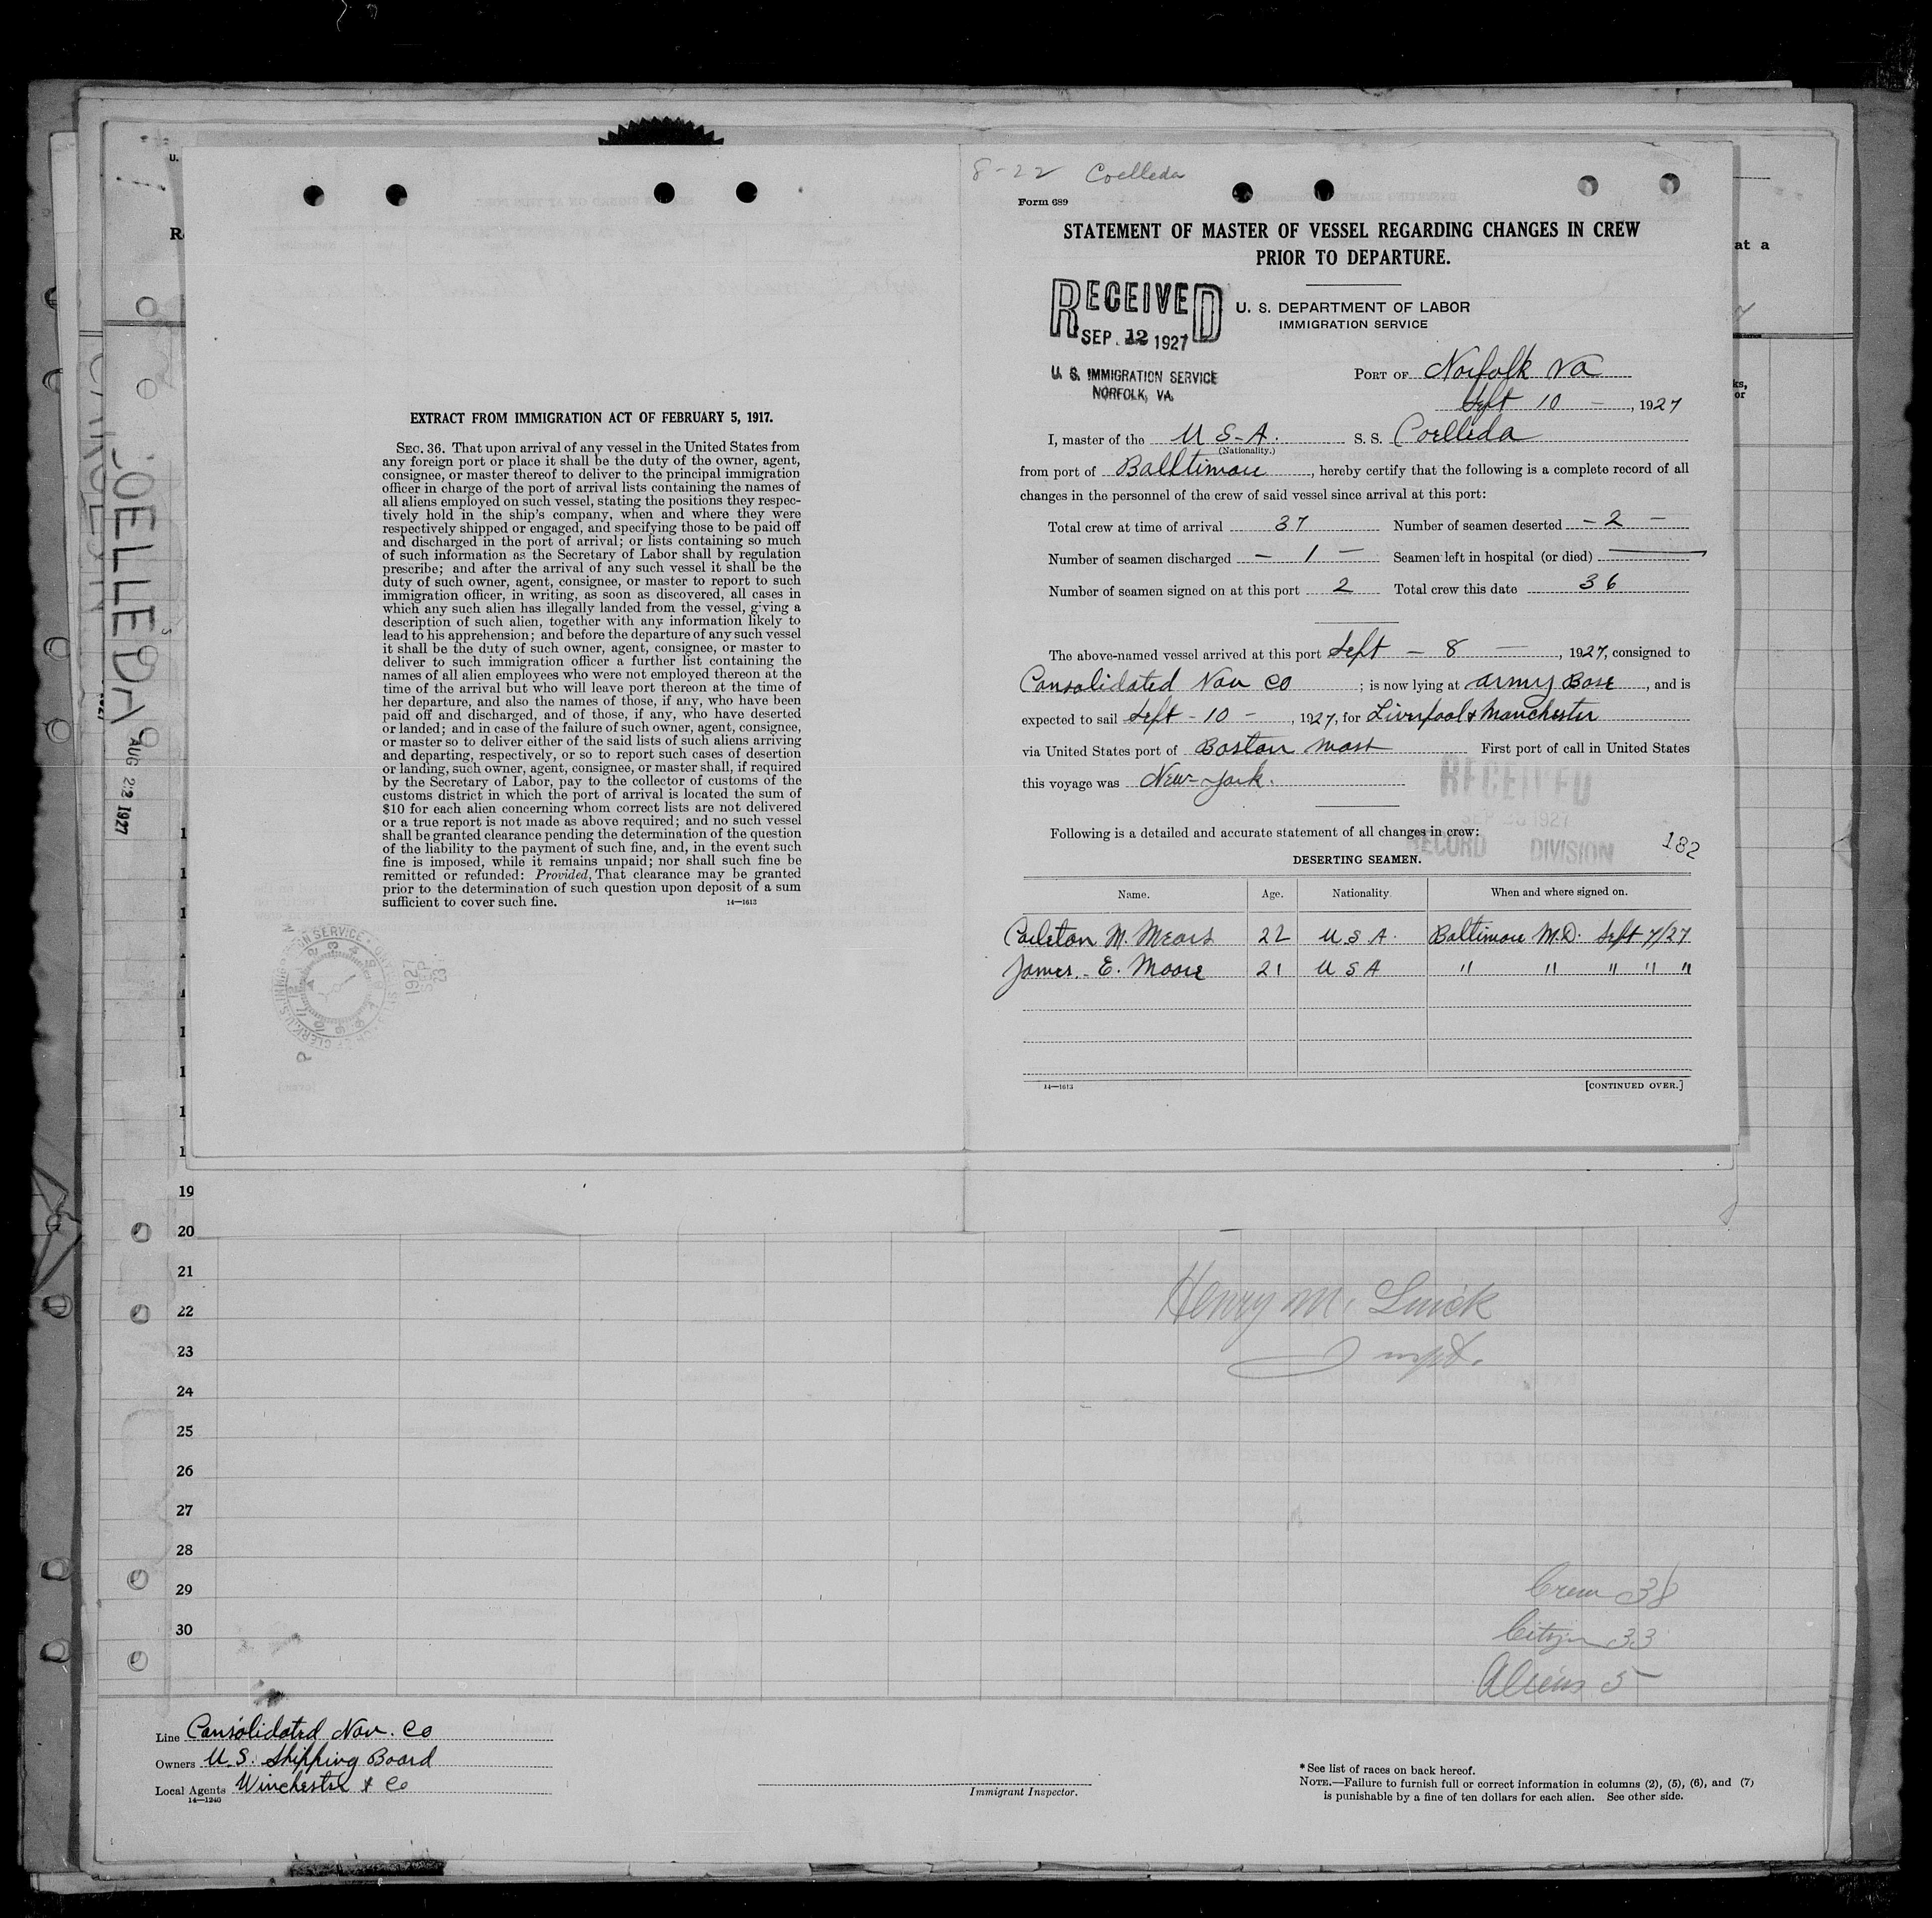 8-22 Coelleda
Form 689
STATEMENT OF MASTER OF VESSEL REGARDING CHANGES IN CREW
PRIOR TO DEPARTURE.
RECEIVED
SEP. 12 1927
U. S. IMMIGRATION SERVICE
NORFOLK, VA.
U. S. DEPARTMENT OF LABOR
IMMIGRATION SERVICE
PORT OF Norfolk Va
Sept 10 - , 1927
I, master of the U S-A. S. S. Coelleda
(Nationality.)
from port of Balltimore, hereby certify that the following is a complete record of all
changes in the personnel of the crew of said vessel since arrival at this port:
Total crew at time of arrival 37 Number of seamen deserted - 2 -
Number of seamen discharged - 1 - Seamen left in hospital (or died)
Number of seamen signed on at this port 2 Total crew this date 36
The above-named vessel arrived at this port Sept - 8 - , 1927, consigned to
Consolidated Nav Co ; is now lying at Army Base, and is
expected to sail Sept - 10 - , 1927, for Liverpool & Manchester
via United States port of Boston Mass First port of call in United States
this voyage was New-York.
RECEIVED
1927
RECORD DIVISION
Following is a detailed and accurate statement of all changes in crew:
182
DESERTING SEAMEN.
Name. Age. Nationality. When and where signed on.
Carleton M. Mears 22 U S A. Baltimore M.D. Sept 7/27
James. E. Moore 21 U S A " " " " "
14—1613
[CONTINUED OVER.]
EXTRACT FROM IMMIGRATION ACT OF FEBRUARY 5, 1917.
SEC. 36. That upon arrival of any vessel in the United States from
any foreign port or place it shall be the duty of the owner, agent,
consignee, or master thereof to deliver to the principal immigration
officer in charge of the port of arrival lists containing the names of
all aliens employed on such vessel, stating the positions they respec-
tively hold in the ship's company, when and where they were
respectively shipped or engaged, and specifying those to be paid off
and discharged in the port of arrival; or lists containing so much
of such information as the Secretary of Labor shall by regulation
prescribe; and after the arrival of any such vessel it shall be the
duty of such owner, agent, consignee, or master to report to such
immigration officer, in writing, as soon as discovered, all cases in
which any such alien has illegally landed from the vessel, giving a
description of such alien, together with any information likely to
lead to his apprehension; and before the departure of any such vessel
it shall be the duty of such owner, agent, consignee, or master to
deliver to such immigration officer a further list containing the
names of all alien employees who were not employed thereon at the
time of the arrival but who will leave port thereon at the time of
her departure, and also the names of those, if any, who have been
paid off and discharged, and of those, if any, who have deserted
or landed; and in case of the failure of such owner, agent, consignee,
or master so to deliver either of the said lists of such aliens arriving
and departing, respectively, or so to report such cases of desertion
or landing, such owner, agent, consignee, or master shall, if required
by the Secretary of Labor, pay to the collector of customs of the
customs district in which the port of arrival is located the sum of
$10 for each alien concerning whom correct lists are not delivered
or a true report is not made as above required; and no such vessel
shall be granted clearance pending the determination of the question
of the liability to the payment of such fine, and, in the event such
fine is imposed, while it remains unpaid; nor shall such fine be
remitted or refunded: Provided, That clearance may be granted
prior to the determination of such question upon deposit of a sum
sufficient to cover such fine.
14—1613
COELLEDA
AUG 22 1927
at a
19
20
21
22
23
24
25
26
27
28
29
30
Henry M.
Inspt.
Crew 38
Citizen 33
Aliens 5
Line Consolidated Nav. Co
Owners U.S. Shipping Board
Local Agents Winchester & Co
14—1240
Immigrant Inspector.
* See list of races on back hereof.
NOTE.—Failure to furnish full or correct information in columns (2), (5), (6), and (7)
is punishable by a fine of ten dollars for each alien. See other side.